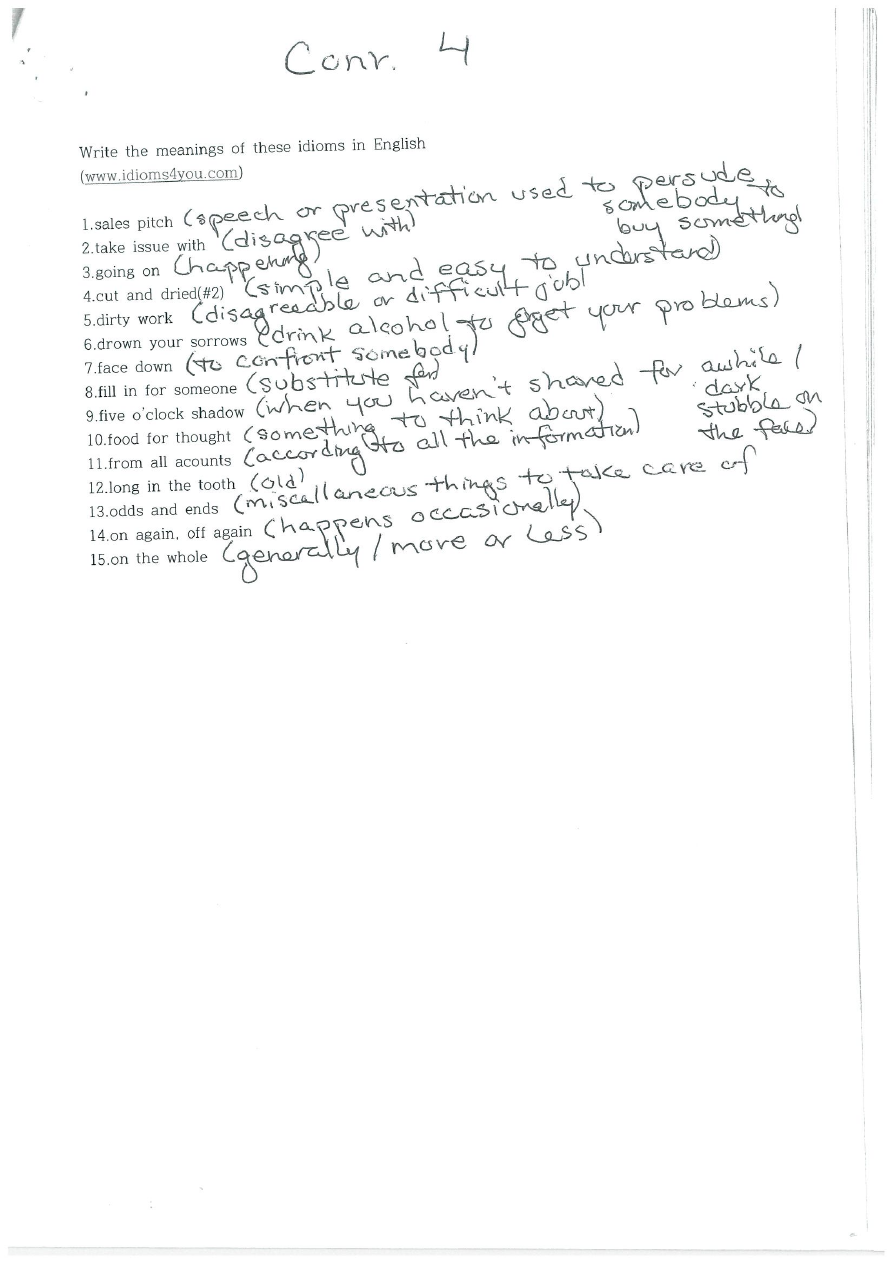 Conv. 4
Write the meanings of these idioms in English
(www.idioms4you.com)
1.sales pitch (speech or presentation used to persude somebody to buy something)
2.take issue with (disagree with)
3.going on (happening)
4.cut and dried(#2) (simple and easy to understand)
5.dirty work (disagreeable or difficult job)
6.drown your sorrows (drink alcohol to forget your problems)
7.face down (to confront somebody)
8.fill in for someone (substitute for)
9.five o'clock shadow (when you haven't shaved for awhile / dark stubble on the face)
10.food for thought (something to think about)
11.from all acounts (according to all the information)
12.long in the tooth (old)
13.odds and ends (miscellaneous things to take care of
14.on again, off again (happens occasionally)
15.on the whole (generally / more or less)